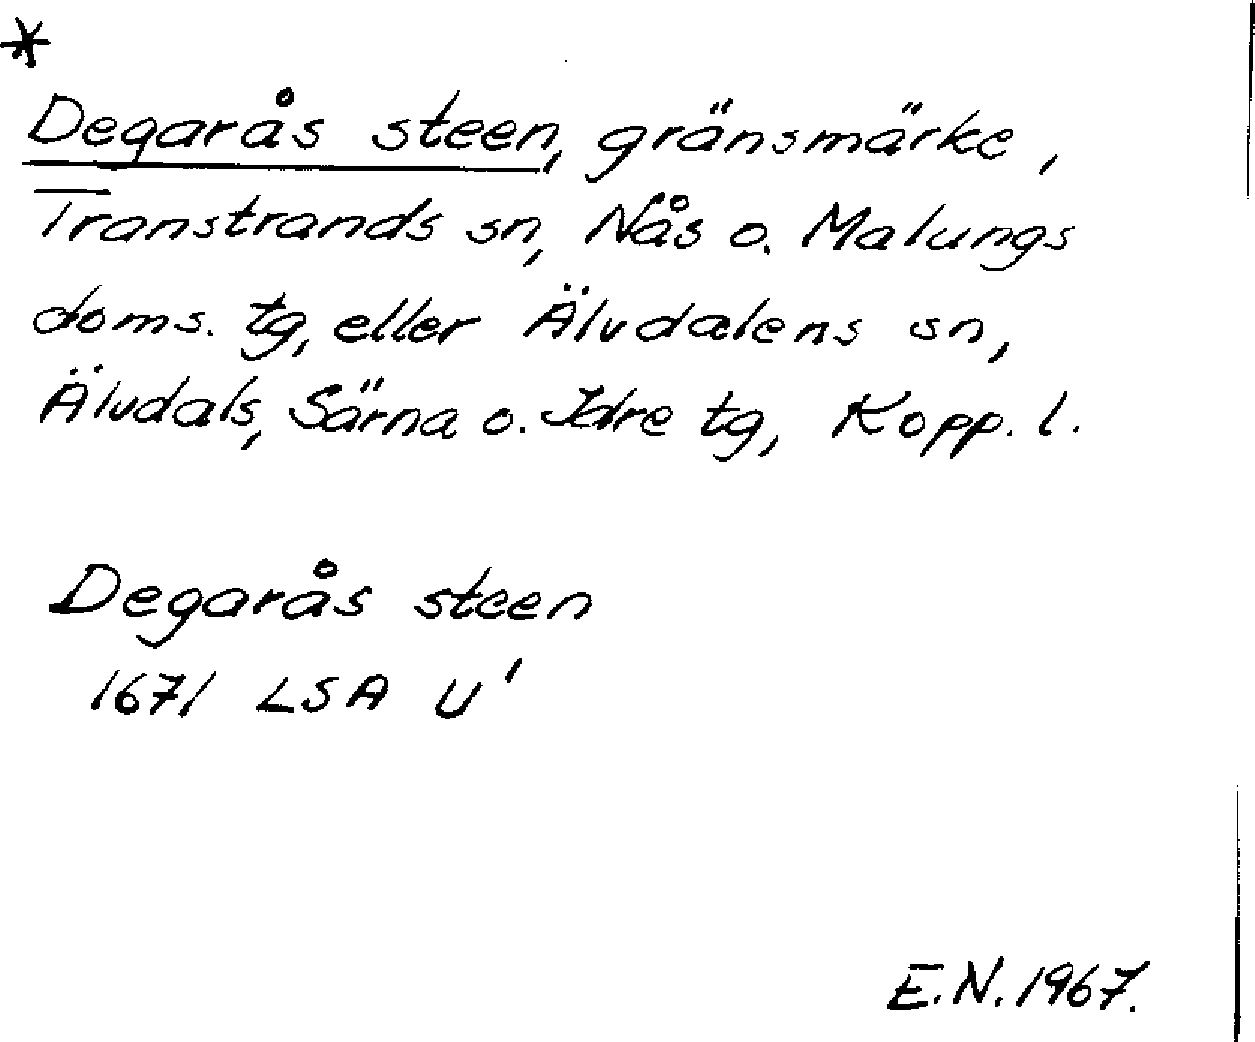 *
Degarås steen, gränsmärke,
Transtrands sn, Nås o. Malungs
doms. tg, eller Älvdalens sn,
Älvdals, Särna o. Idre tg, Kopp. l.
Degarås steen
1671 LSA U'
E.N. 1967.